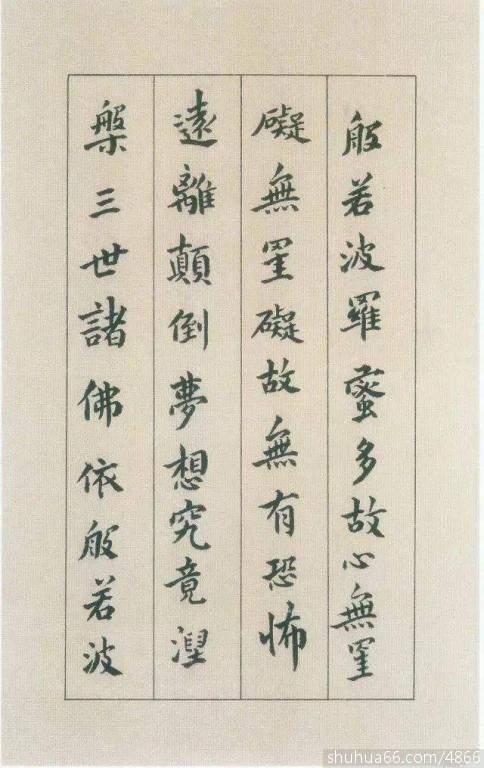 般若波羅蜜多故心無罣
礙無罣礙故無有恐怖
遠離顛倒夢想究竟涅
槃三世諸佛依般若波
shuhua66.com/4866